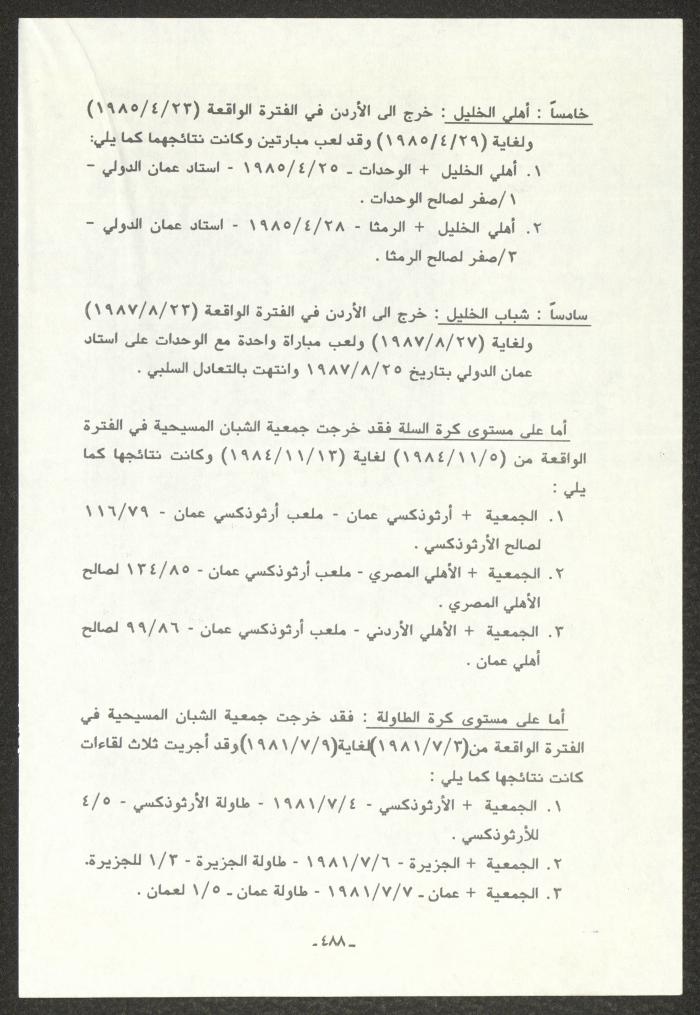 خامساً : أهلي الخليل : خرج الى الأردن في الفترة الواقعة (١٩٨٥/٤/٢٣)
ولغاية (١٩٨٥/٤/٢٩) وقد لعب مبارتين وكانت نتائجهما كما يلي:
١. أهلي الخليل + الوحدات ـ ١٩٨٥/٤/٢٥ - استاد عمان الدولي –
١/صفر لصالح الوحدات .
٢. أهلي الخليل + الرمثا - ١٩٨٥/٤/٢٨ - استاد عمان الدولي –
٣/صفر لصالح الرمثا .
سادساً : شباب الخليل : خرج الى الأردن في الفترة الواقعة (١٩٨٧/٨/٢٣)
ولغاية (١٩٨٧/٨/٢٧) ولعب مباراة واحدة مع الوحدات على استاد
عمان الدولي بتاريخ ١٩٨٧/٨/٢٥ وانتهت بالتعادل السلبي .
أما على مستوى كرة السلة فقد خرجت جمعية الشبان المسيحية في الفترة
الواقعة من (١٩٨٤/١١/٥) لغاية (١٩٨٤/١١/١٣) وكانت نتائجها كما
يلي :
١. الجمعية + أرثوذكسي عمان - ملعب أرثوذكسي عمان - ١١٦/٧٩
لصالح الأرثوذكسي .
٢. الجمعية + الأهلي المصري - ملعب أرثوذكسي عمان - ١٣٤/٨٥ لصالح
الأهلي المصري .
٣. الجمعية + الأهلي الأردني - ملعب أرثوذكسي عمان - ٩٩/٨٦ لصالح
أهلي عمان .
أما على مستوى كرة الطاولة : فقد خرجت جمعية الشبان المسيحية في
الفترة الواقعة من(١٩٨١/٧/٣)لغاية(١٩٨١/٧/٩)وقد أجريت ثلاث لقاءات
كانت نتائجها كما يلي :
١. الجمعية + الأرثوذكسي - ١٩٨١/٧/٤ - طاولة الأرثوذكسي - ٤/٥
للأرثوذكسي .
٢. الجمعية + الجزيرة - ١٩٨١/٧/٦ - طاولة الجزيرة - ١/٣ للجزيرة.
٣. الجمعية + عمان ـ ١٩٨١/٧/٧ - طاولة عمان ـ ١/٥ لعمان .
ـ ٤٨٨ ـ